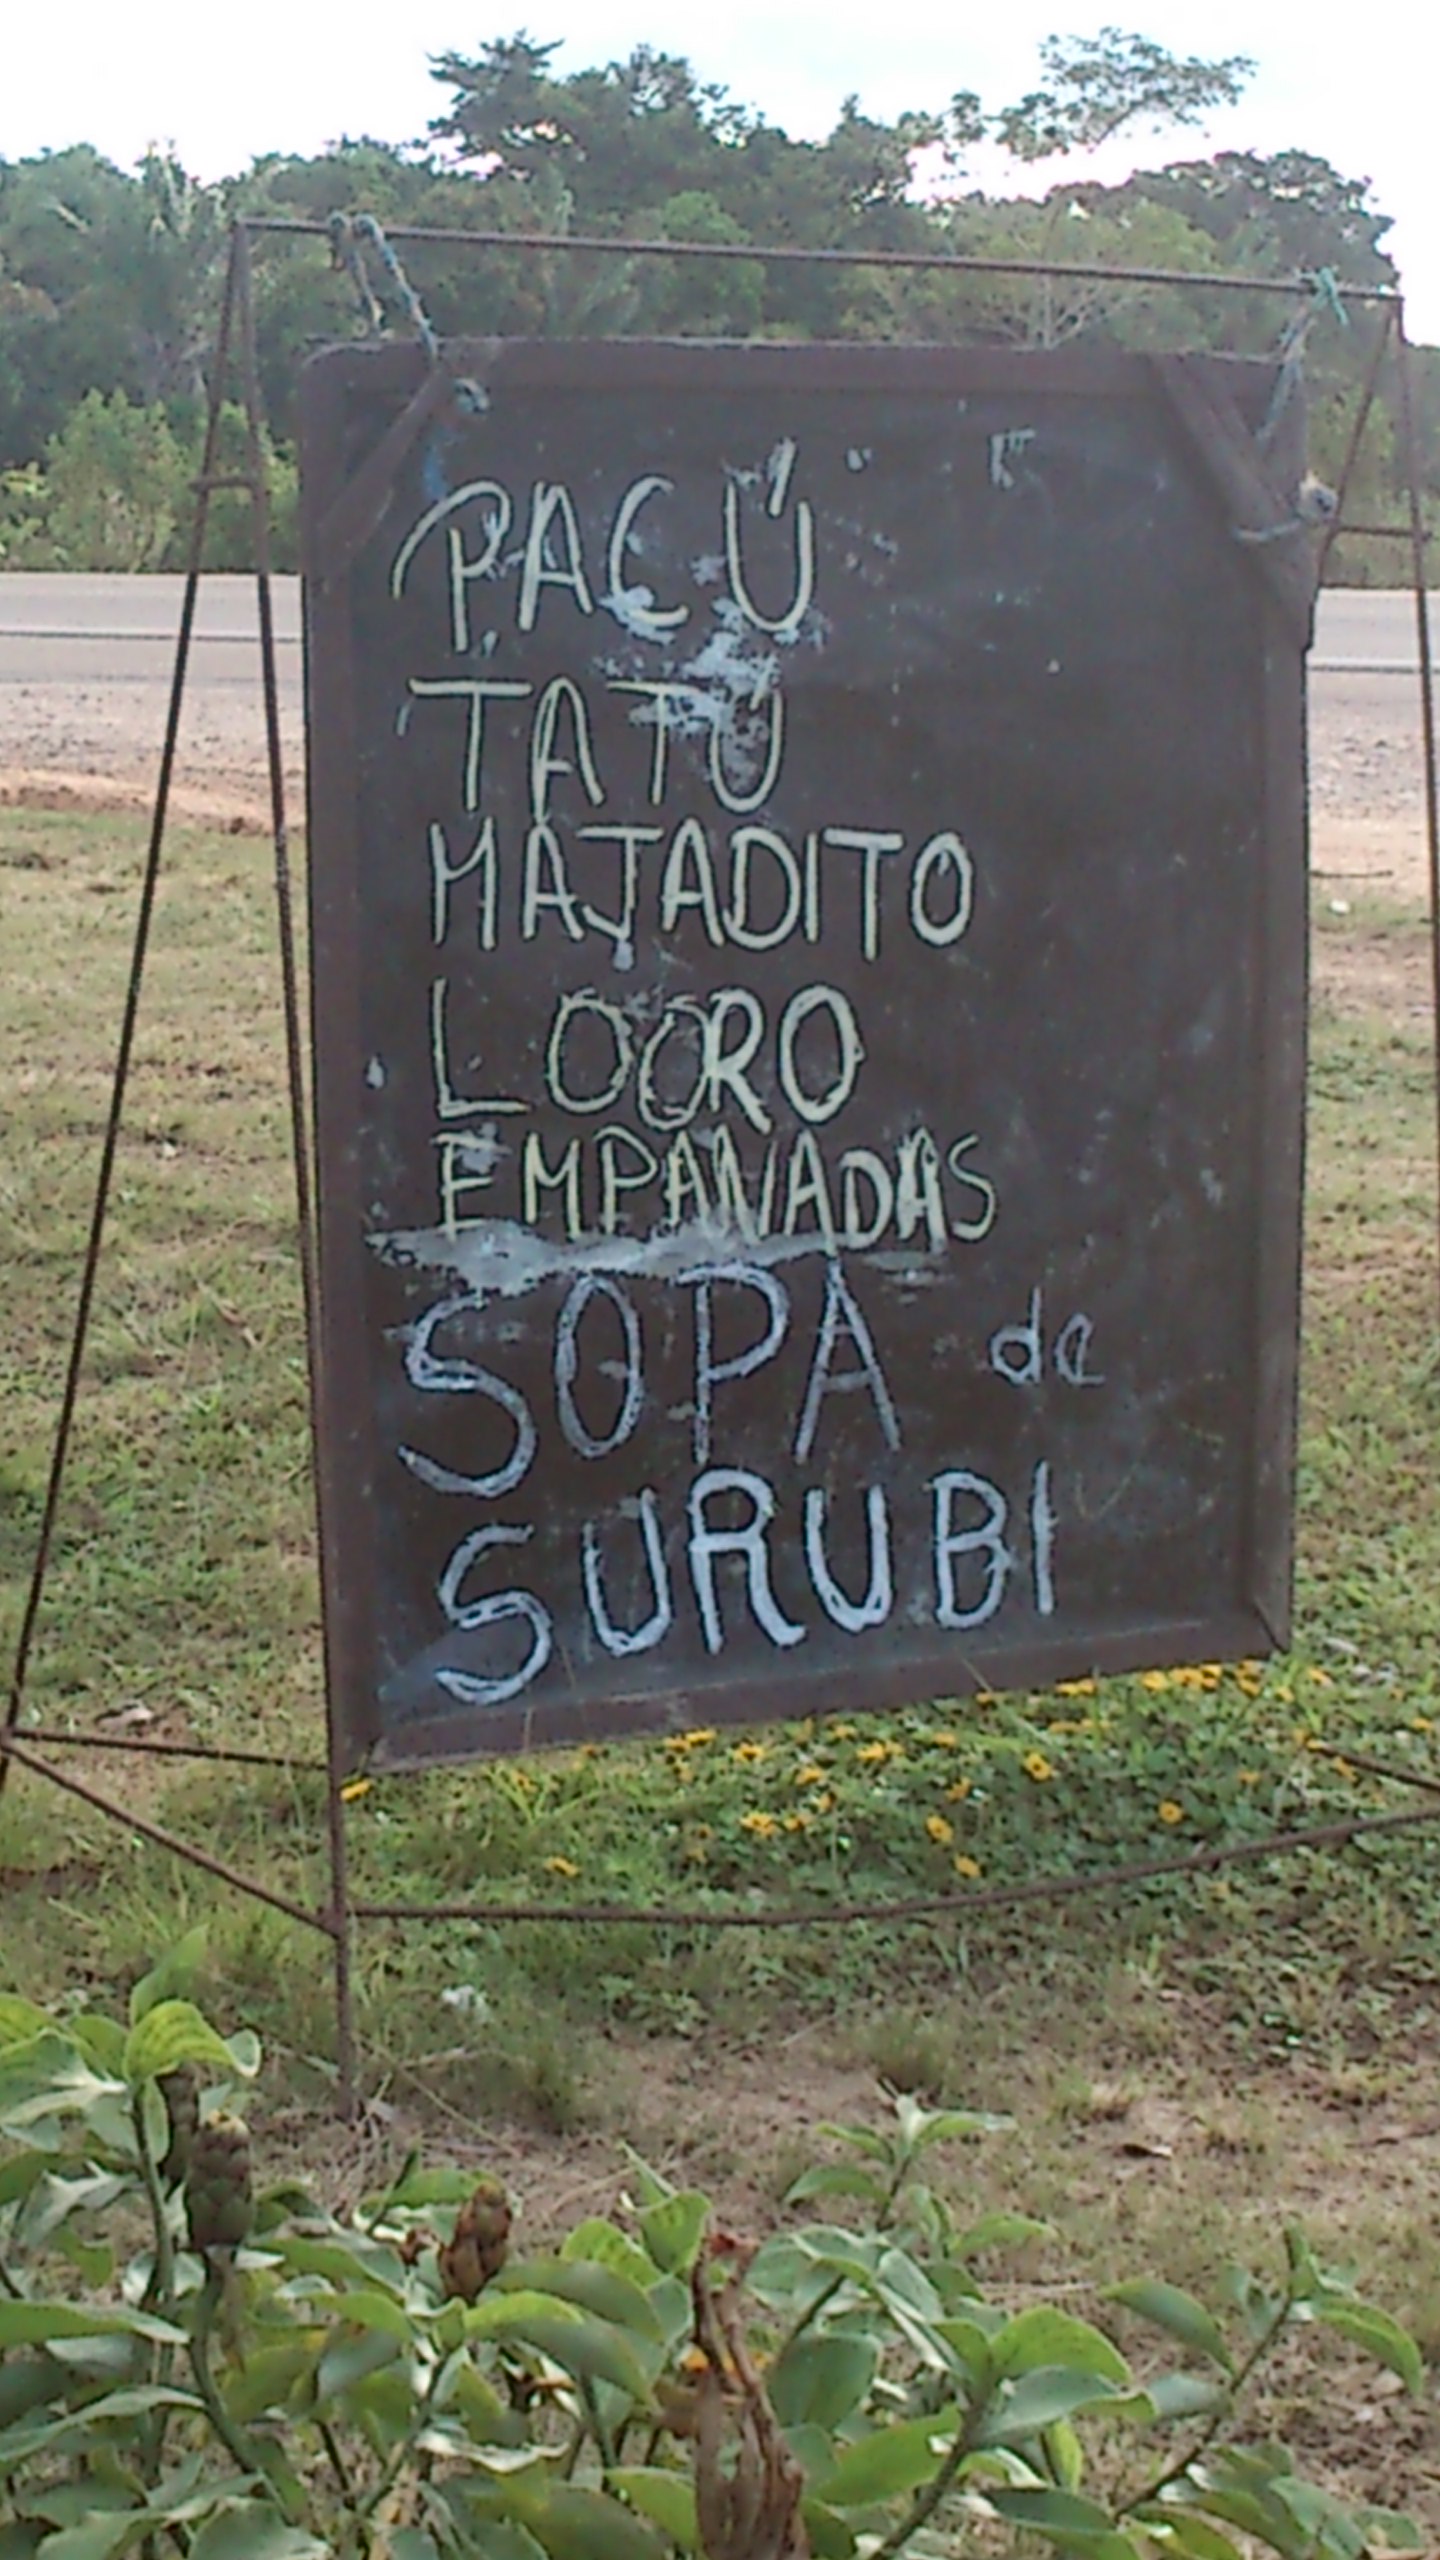 PACÚ
TATÚ
MAJADITO
LOCRO
EMPANADAS
SOPA de
SURUBI